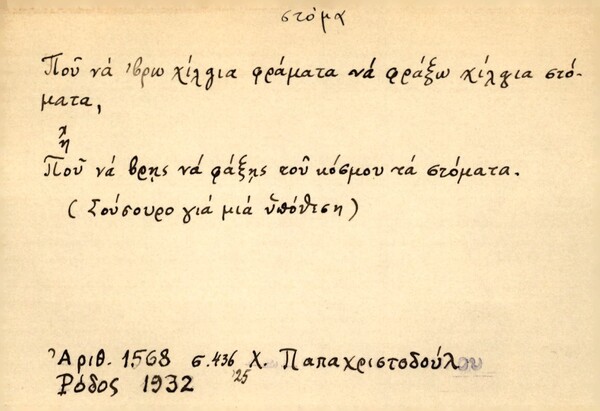 στόμα
Ποῦ νά 'βρω χίλjια φράματα νά φράξω χίλjια στό-
ματα,
ἤ
Ποῦ νά βρῃς νά φάξῃς τοῦ κόσμου τά στόματα.
(Σούσουρο γιά μιά ὑπόθεση)
Ἀριθ. 1568 σ. 436 Χ. Παπαχριστοδούλου
Ρόδος 1932 '25